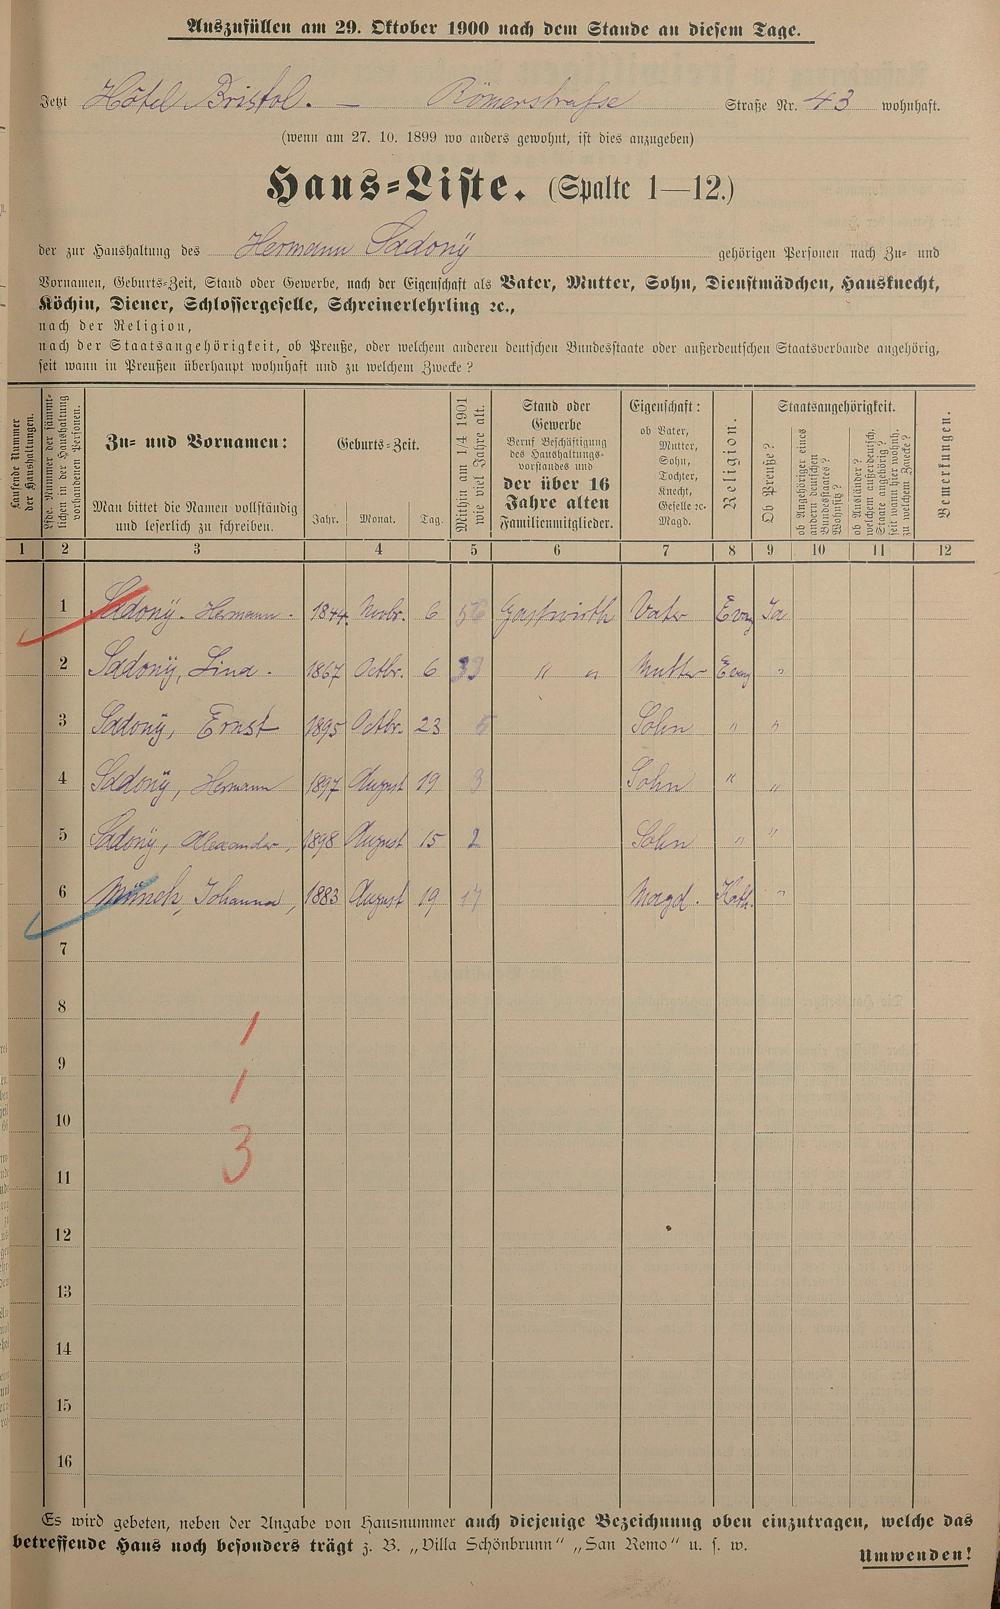 Auszufüllen am 29. Oktober 1900 nach dem Stande an diesem Tage.
Jetzt Hôtel Bristol. — Römerstraße Straße Nr. 43 wohnhaft.
(wenn am 27. 10. 1899 wo anders gewohnt, ist dies anzugeben)
Haus-Liste. (Spalte 1—12.)
der zur Haushaltung des Hermann Sadonÿ gehörigen Personen nach Zu- und
Vornamen, Geburts-Zeit, Stand oder Gewerbe, nach der Eigenschaft als Vater, Mutter, Sohn, Dienstmädchen, Hausknecht,
Köchin, Diener, Schlossergeselle, Schreinerlehrling ꝛc.,
nach der Religion,
nach der Staatsangehörigkeit, ob Preuße, oder welchem anderen deutschen Bundesstaate oder außerdeutschen Staatsverbande angehörig,
seit wann in Preußen überhaupt wohnhaft und zu welchem Zwecke?
Laufende Nummer der Haushaltungen.
Lfde. Nummer der sämmtlichen in der Haushaltung vorhandenen Personen.
Zu- und Vornamen:
Man bittet die Namen vollständig
und leserlich zu schreiben.
Geburts-Zeit.
Jahr. Monat. Tag.
Mithin am 1/4 1901 wie viel Jahre alt.
Stand oder
Gewerbe
Beruf Beschäftigung
des Haushaltungs-
vorstandes und
der über 16
Jahre alten
Familienmitglieder.
Eigenschaft:
ob Vater,
Mutter,
Sohn,
Tochter,
Knecht,
Geselle ꝛc.
Magd.
Religion.
Staatsangehörigkeit.
Ob Preuße?
ob Angehöriger eines andern deutschen Bundesstaates? Wohnsitz?
ob Ausländer? welchem außerdeutsch. Staate angehörig? seit wann hier wohnh. zu welchem Zwecke?
Bemerkungen.
1 2 3 4 5 6 7 8 9 10 11 12
1 Sadonÿ. Hermann. 1844. Novbr. 6 56 Gastwirth Vater Evg Ja
2 Sadonÿ, Lina. 1867 Octbr. 6 33 " " Mutter Evg "
3 Sadonÿ, Ernst 1895 Octbr. 23 5 Sohn " "
4 Sadonÿ, Hermann 1897 August 19 3 Sohn " "
5 Sadonÿ, Alexander, 1898 August 15 2 Sohn " "
6 Münch, Johanna, 1883 August 19 17 Magd. Kath. "
7
8
1
9
1
10
3
11
12
13
14
15
16
Es wird gebeten, neben der Angabe von Hausnummer auch diejenige Bezeichnung oben einzutragen, welche das
betreffende Haus noch besonders trägt z. B. „Villa Schönbrunn" „San Remo" u. s. w.
Umwenden!